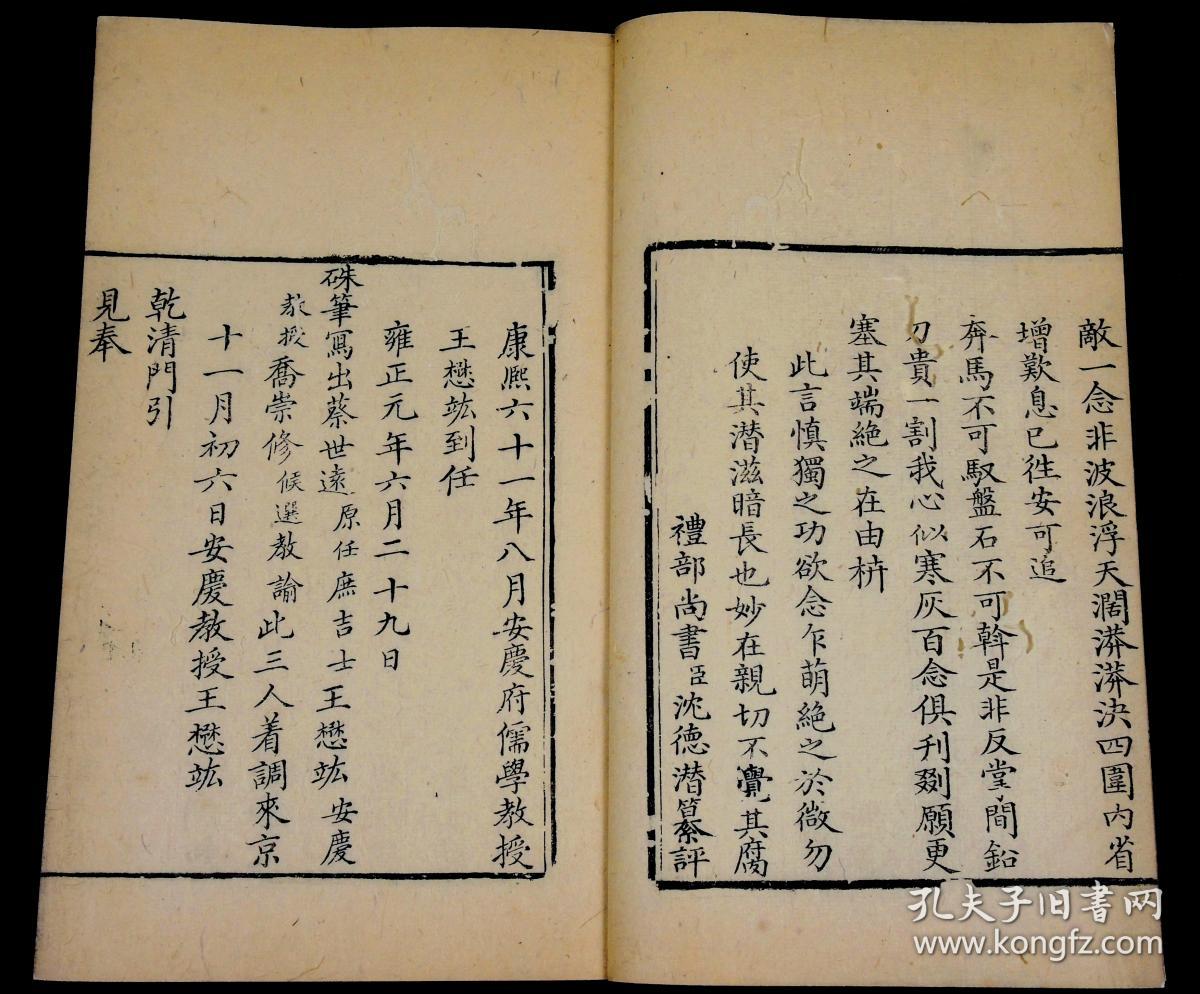 敵一念非波浪浮天濶漭漭決四圍內省
增歎息已徃安可追
奔馬不可馭盤石不可斡是非反掌間鉛
刀貴一割我心似寒灰百念俱刋剟願更
塞其端絶之在由枿
此言慎獨之功欲念乍萌絶之於微勿
使其潜滋暗長也妙在親切不覺其腐
禮部尚書臣沈德潜纂評
康熈六十一年八月安慶府儒學教授
王懋竑到任
雍正元年六月二十九日
硃筆寫出蔡世遠原任庶吉士王懋竑安慶
教授喬崇修候選教諭此三人着調來京
十一月初六日安慶教授王懋竑
乾清門引
見奉
孔夫子旧书网
www.kongfz.com